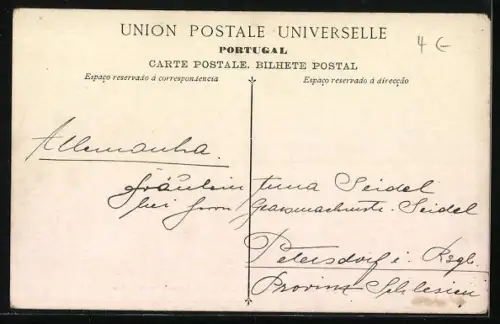 UNION POSTALE UNIVERSELLE
4 €
PORTUGAL
CARTE POSTALE. BILHETE POSTAL
Espaço reservado á correspondencia
Espaço reservado á direcção
Allemanha.
Fräulein Anna Seidel
bei Herrn Seidel
Petersdorf i. Rsgb.
Provinz Schlesien